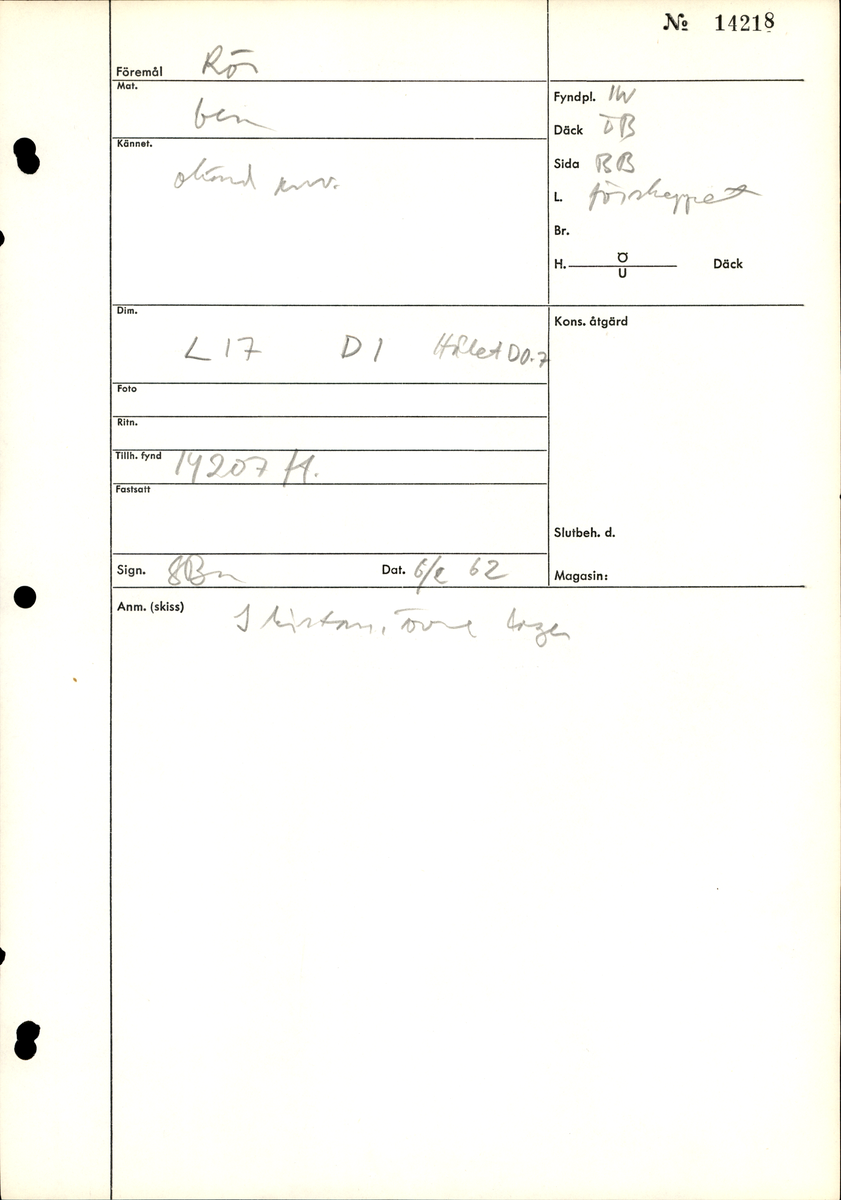 № 14218
Föremål Rör
Mat. ben
Kännet. okänd anv.
Fyndpl. IW
Däck ÖB
Sida BB
L. förskeppet
Br.
H. Ö U Däck
Dim. L 17 D 1 Hålet D 0.7
Kons. åtgärd
Foto
Ritn.
Tillh. fynd 14207 ff.
Fastsatt
Slutbeh. d.
Sign. Dat. 6/2 62
Magasin:
Anm. (skiss) I kistan, övre lager